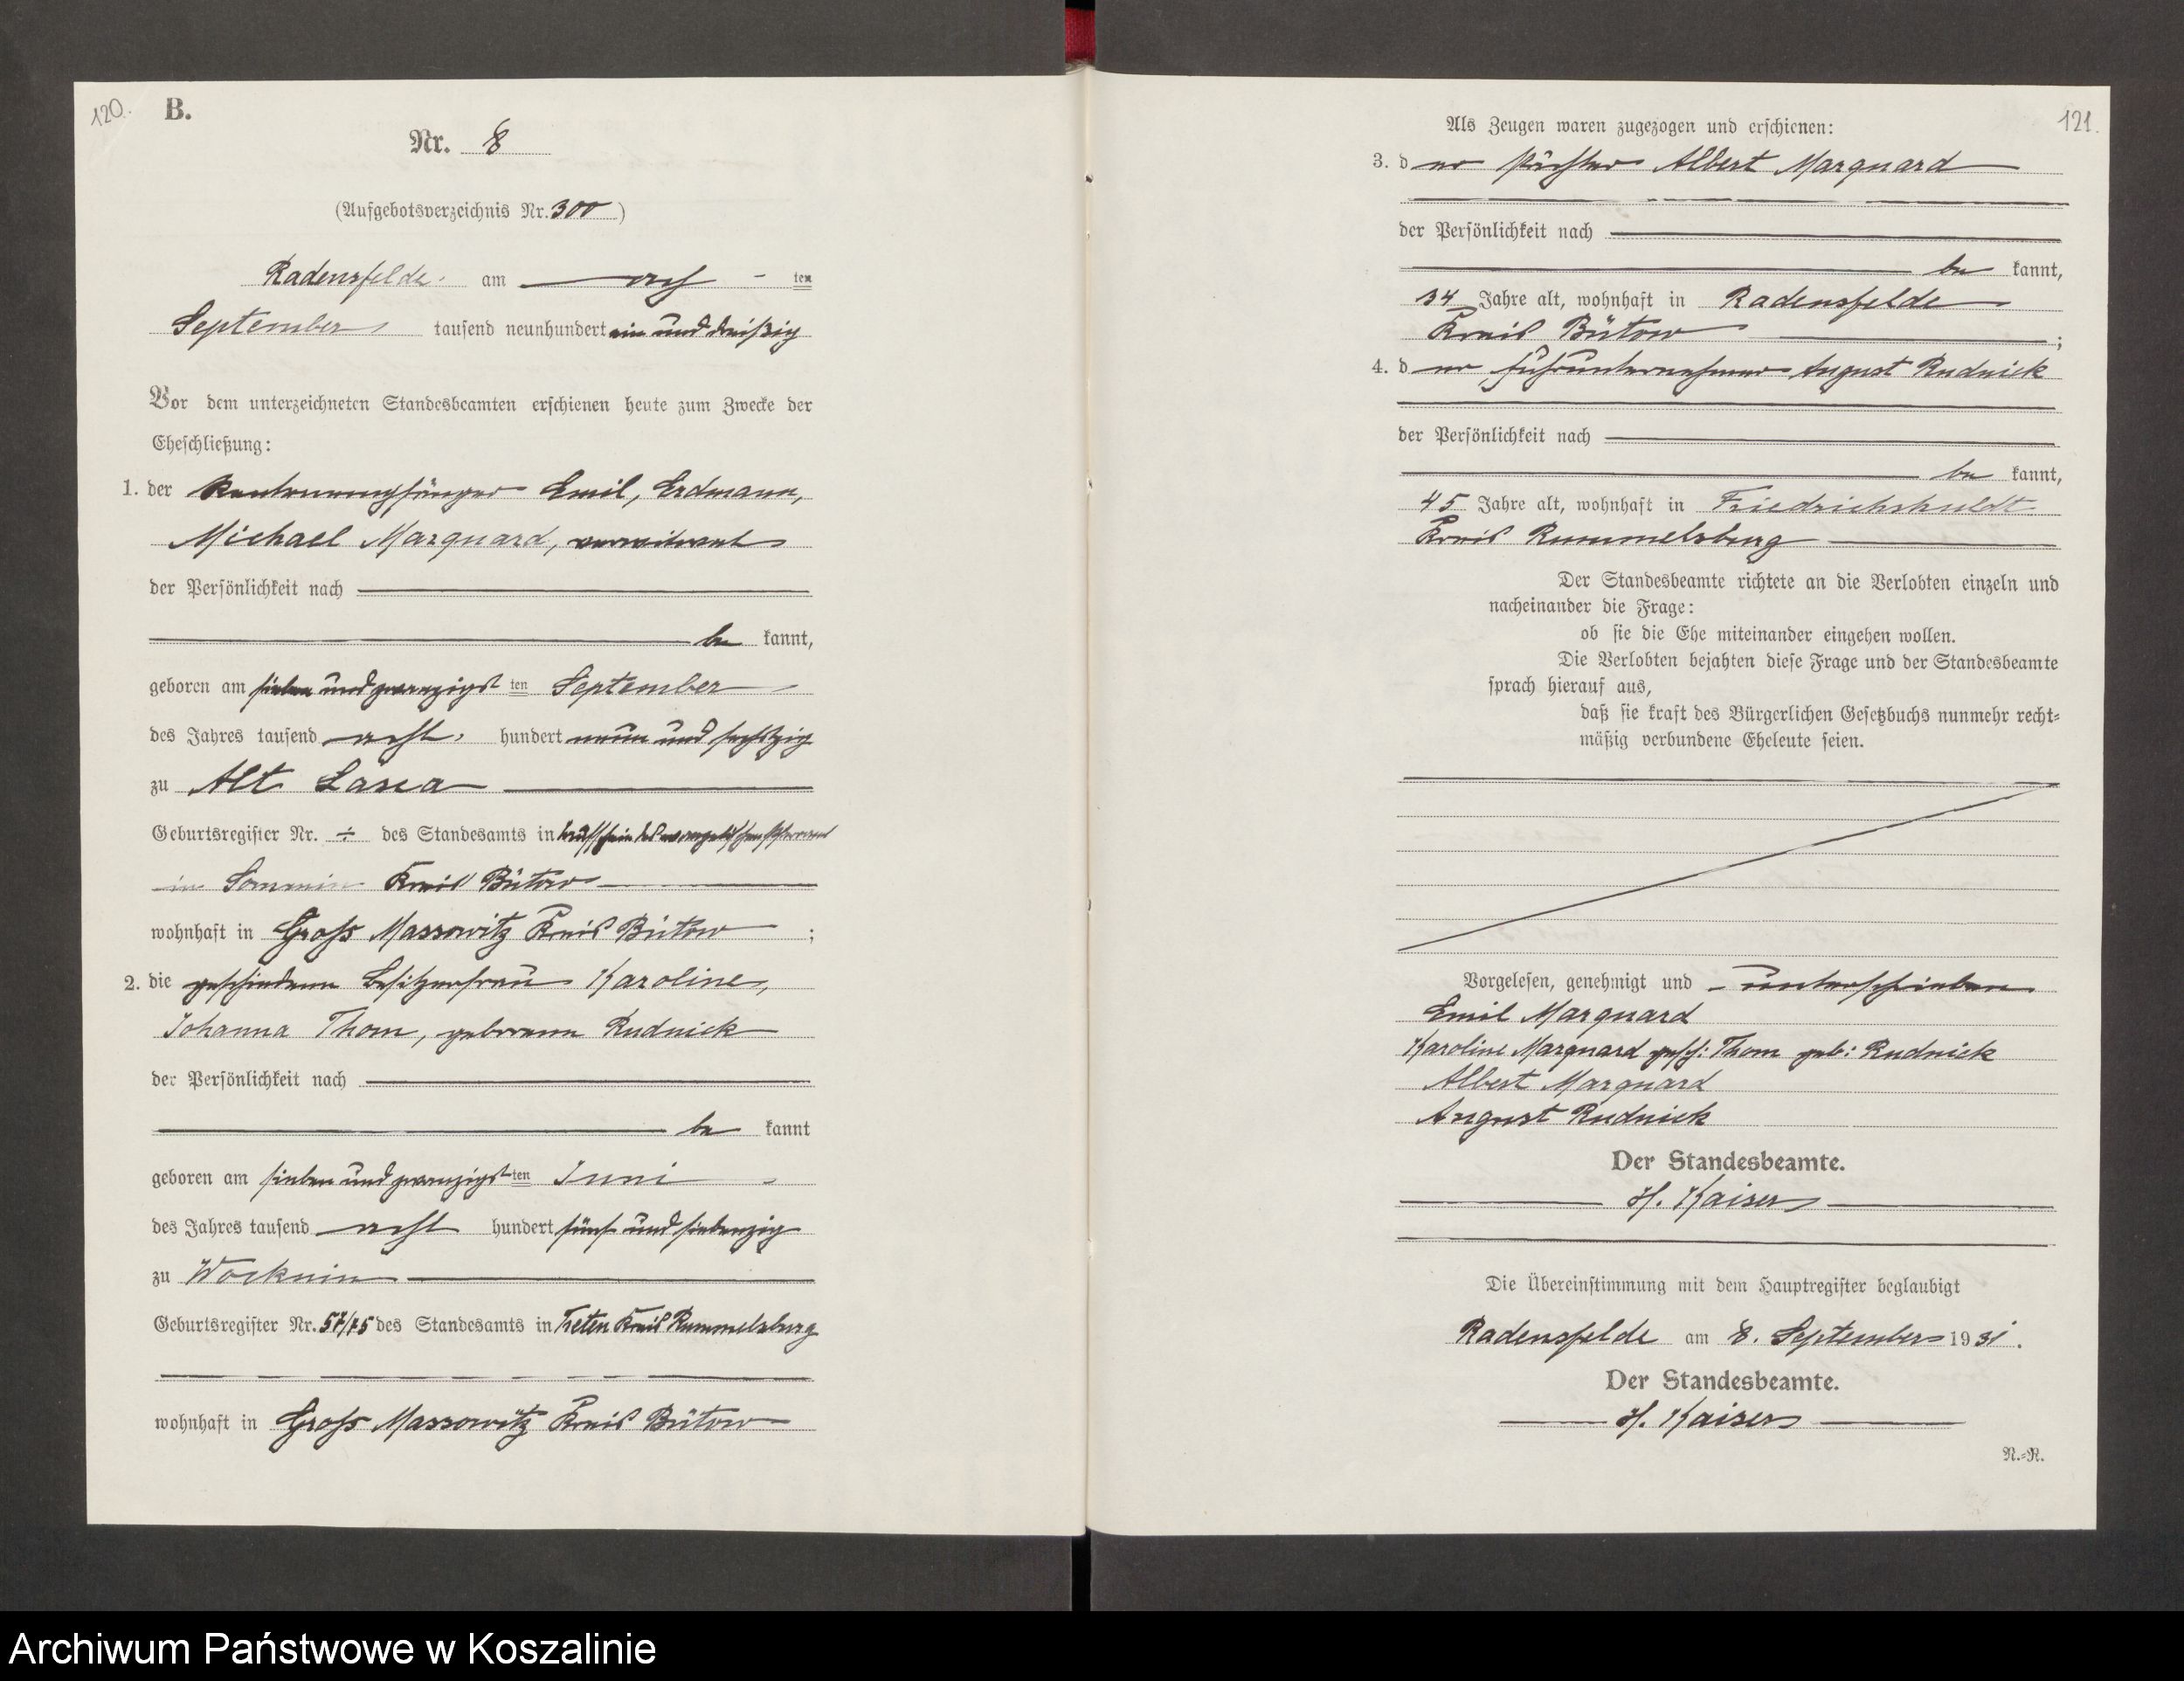 120.
B.
Nr. 8
(Aufgebotsverzeichnis Nr. 300)
Radensfelde am acht ten
September tausend neunhundert ein und dreißig
Vor dem unterzeichneten Standesbeamten erschienen heute zum Zwecke der
Eheschließung:
1. der Rentenempfänger Emil, Erdmann,
Michael Marquard, verwitwet
der Persönlichkeit nach
be kannt,
geboren am sieben und zwanzigst ten September
des Jahres tausend acht hundert neun und sechszig
zu Alt
Geburtsregister Nr. ÷ des Standesamts in Taufschein des evangelischen Pfarramt
in Sommin Kreis Bütow
wohnhaft in Groß Massowitz Kreis Bütow ;
2. die geschiedene Besitzerfrau Karoline,
Johanna Thom, geborene Rudnick
der Persönlichkeit nach
be kannt
geboren am sieben und zwanzigst ten Juni
des Jahres tausend acht hundert fünf und siebenzig
zu Wocknin
Geburtsregister Nr. 57/75 des Standesamts in Treten Kreis Rummelsburg
wohnhaft in Groß Massowitz Kreis Bütow
121.
Als Zeugen waren zugezogen und erschienen:
3. d er Pächter Albert Marquard
der Persönlichkeit nach
be kannt,
34 Jahre alt, wohnhaft in Radensfelde
Kreis Bütow ;
4. d er Fuhrunternehmer August Rudnick
der Persönlichkeit nach
be kannt,
45 Jahre alt, wohnhaft in Friedrichshuldt
Kreis Rummelsburg
Der Standesbeamte richtete an die Verlobten einzeln und
nacheinander die Frage:
ob sie die Ehe miteinander eingehen wollen.
Die Verlobten bejahten diese Frage und der Standesbeamte
sprach hierauf aus,
daß sie kraft des Bürgerlichen Gesetzbuchs nunmehr recht-
mäßig verbundene Eheleute seien.
Vorgelesen, genehmigt und unterschrieben
Emil Marquard
Karoline Marquard gesch: Thom geb: Rudnick
Albert Marquard
August Rudnick
Der Standesbeamte.
H. Kaiser
Die Übereinstimmung mit dem Hauptregister beglaubigt
Radensfelde am 8. September 1931.
Der Standesbeamte.
H. Kaiser
N.-R.
Archiwum Państwowe w Koszalinie